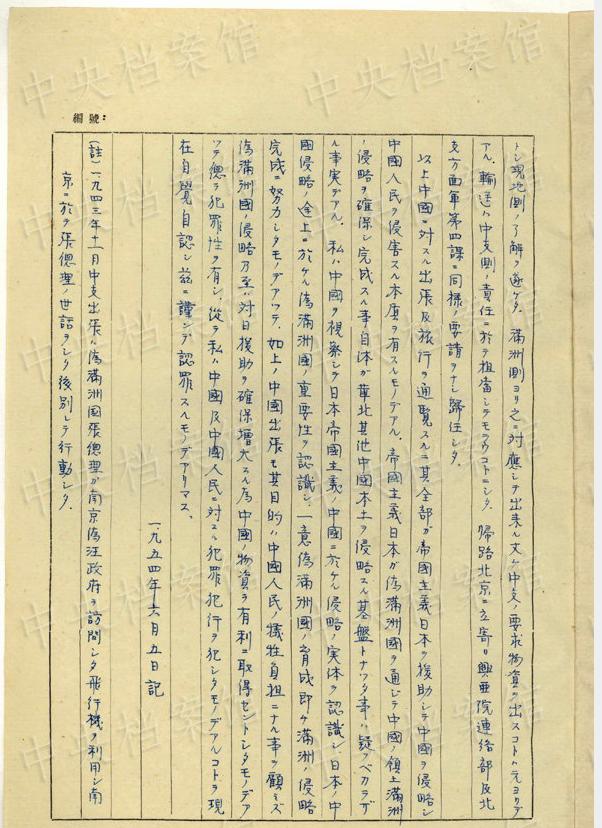 編號：
トシ現地側ノ了解ヲ遂ゲタ．満洲側ヨリ之ニ対應シテ出来ル丈ケ中支ノ要求物資ヲ出スコトハ元ヨリデ
アル．輸送ハ中支側ノ責任ニ於テ担当シテモラウコトニシタ．帰路北京ニ立寄リ興亜院連絡部及北
支方面軍第四課ニ同様ノ要請ヲナシ歸任シタ．
以上中國ニ対スル出張及旅行ヲ通覧スルニ其全部ガ帝國主義日本ヲ援助シテ中國ヲ侵略シ
中國人民ヲ侵害スル本质ヲ有スルモノデアル．帝國主義日本ガ偽満洲國ヲ通ジテ中國ノ領土満洲
侵略ヲ確保シ完成スル事自体ガ華北其他中國本土ヲ侵略スル基盤トナツタ事ハ疑フベカラザ
ル事実デアル．私ハ中國ヲ視察シテ日本帝國主義ノ中國ニ於ケル侵略ノ実体ヲ認識シ日本ノ中
國侵略ノ途上ニ於ケル偽満洲國ノ重要性ヲ認識シ一意偽満洲國ノ育成即ケ満洲ノ侵略
完成ニ努力シタモノデアツテ．如上ノ中國出張モ其目的ハ中國人民ノ犠牲負担ニナル事ヲ顧ミズ
偽満洲國ノ侵略乃至ハ対日援助ヲ確保増大スル為中國ノ物資ヲ有利ニ取得セントシタモノデア
ツテ德ラ犯罪性ヲ有シ．從ヲ私ハ中國及中國人民ニ対スル犯罪犯行ヲ犯シタモノデアルコトヲ現
在自覺自認シ茲ニ謹ンデ認罪スルモノデアリマス．
一九五四年六月五日記
(註)一九四三年十一月中支出張ハ偽満洲国張總理ガ南京偽汪政府ヲ訪問シタ飛行機ヲ利用シ南
京ニ於テ張總理ノ世話ヲシタ後別レテ行動シタ．
中央档案馆